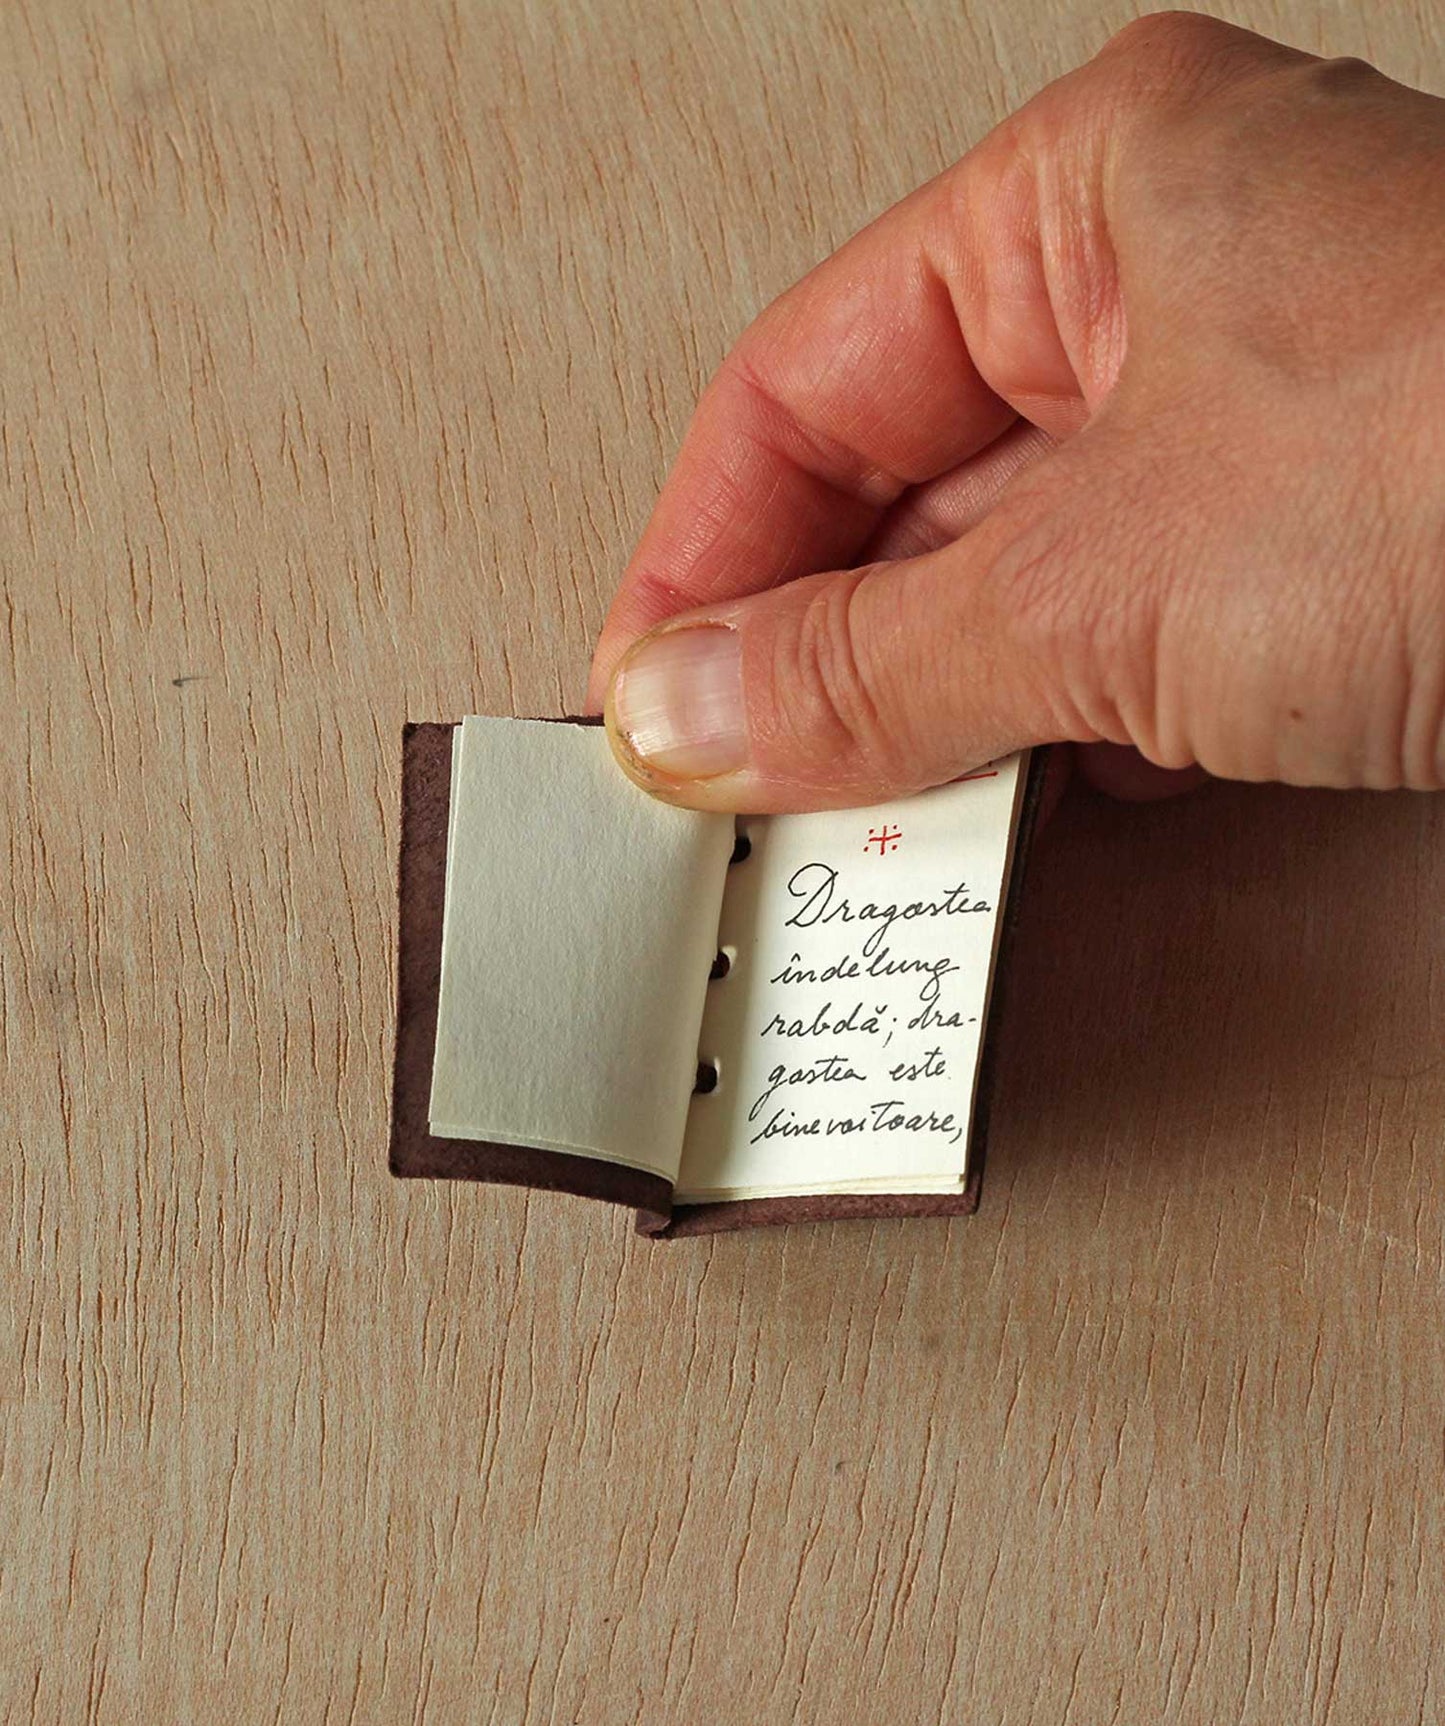 Dragostea
îndelung
rabdă; dra-
gostea este
binevoitoare,